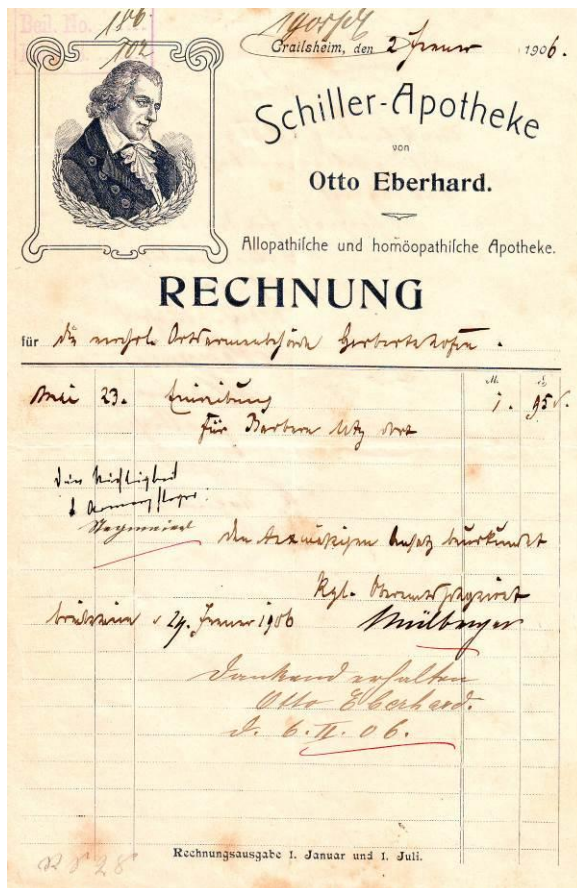 Beil. No. 186
102
Crailsheim, den 2 Januar 1906.
Schiller-Apotheke
von
Otto Eberhard.
Allopathische und homöopathische Apotheke.
RECHNUNG
für die verehrl. Ortsarmenbehörde Gerbertshofen.
M. ₰
Mai 23. Einreibung 1. 95
für Barbara Utz dort
Die Richtigkeit
den taxmäßigen Ansatz beurkundet
Kgl. Oberamts
29. Januar 1906 Mülberger
Dankend erhalten
Otto Eberhard.
d. 6.II.06.
Rechnungsausgabe 1. Januar und 1. Juli.